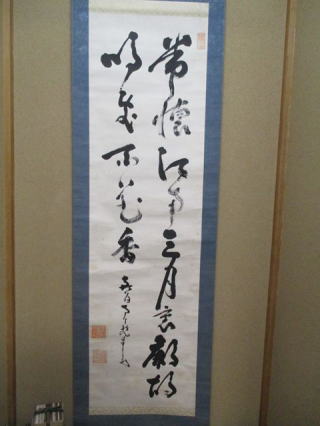 常憶江南三月裏鷓鴣
啼処百花香